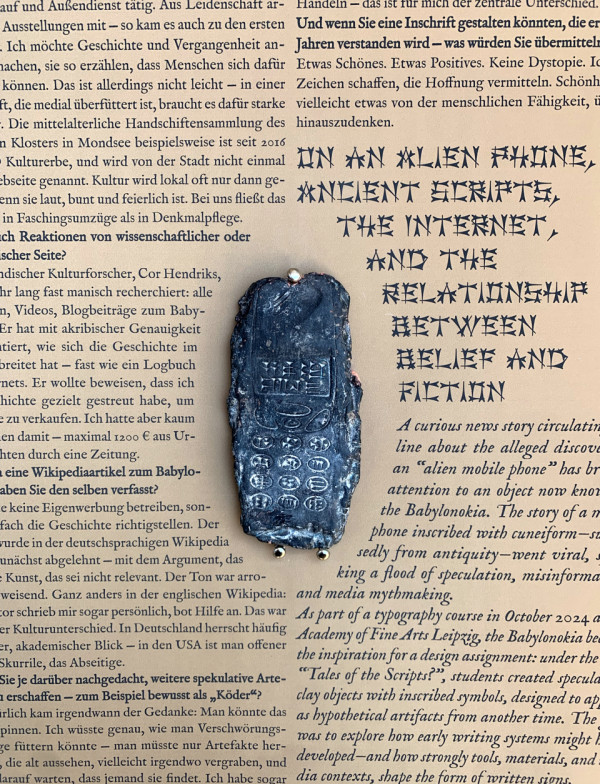 auf und Außendienst tätig. Aus Leidenschaft ar-
Ausstellungen mit – so kam es auch zu den ersten
. Ich möchte Geschichte und Vergangenheit an-
machen, sie so erzählen, dass Menschen sich dafür
können. Das ist allerdings nicht leicht – in einer
ft, die medial überfüttert ist, braucht es dafür starke
. Die mittelalterliche Handschriftensammlung des
n Klosters in Mondsee beispielsweise ist seit 2016
Kulturerbe, und wird von der Stadt nicht einmal
ebseite genannt. Kultur wird lokal oft nur dann ge-
enn sie laut, bunt und feierlich ist. Bei uns fließt das
in Faschingsumzüge als in Denkmalpflege.
uch Reaktionen von wissenschaftlicher oder
ischer Seite?
ndischer Kulturforscher, Cor Hendriks,
hr lang fast manisch recherchiert: alle
n, Videos, Blogbeiträge zum Baby-
Er hat mit akribischer Genauigkeit
ntiert, wie sich die Geschichte im
breitet hat – fast wie ein Logbuch
rnets. Er wollte beweisen, dass ich
hichte gezielt gestreut habe, um
e zu verkaufen. Ich hatte aber kaum
hen damit – maximal 1200 € aus Ur-
hten durch eine Zeitung.
n eine Wikipediaartikel zum Babylo-
aben Sie den selben verfasst?
e keine Eigenwerbung betreiben, son-
fach die Geschichte richtigstellen. Der
wurde in der deutschsprachigen Wikipedia
unächst abgelehnt – mit dem Argument, das
e Kunst, das sei nicht relevant. Der Ton war arro-
weisend. Ganz anders in der englischen Wikipedia:
tor schrieb mir sogar persönlich, bot Hilfe an. Das war
er Kulturunterschied. In Deutschland herrscht häufig
er, akademischer Blick – in den USA ist man offener
Skurrile, das Abseitige.
Sie je darüber nachgedacht, weitere spekulative Arte-
u erschaffen – zum Beispiel bewusst als „Köder“?
ürlich kam irgendwann der Gedanke: Man könnte das
spinnen. Ich wüsste genau, wie man Verschwörungs-
ge füttern könnte – man müsste nur Artefakte her-
die alt aussehen, vielleicht irgendwo vergraben, und
darauf warten, dass jemand sie findet. Ich habe sogar
Handeln – das ist für mich der zentrale Unterschied.
Und wenn Sie eine Inschrift gestalten könnten, die er
Jahren verstanden wird – was würden Sie übermitteln
Etwas Schönes. Etwas Positives. Keine Dystopie. Ic
Zeichen schaffen, die Hoffnung vermitteln. Schönh
vielleicht etwas von der menschlichen Fähigkeit, ü
hinauszudenken.
ON AN ALIEN PHONE,
ANCIENT SCRIPTS,
THE INTERNET,
AND THE
RELATIONSHIP
BETWEEN
BELIEF AND
FICTION
A curious news story circulating
line about the alleged discove
an “alien mobile phone” has br
attention to an object now know
the Babylonokia. The story of a m
phone inscribed with cuneiform—su
sedly from antiquity—went viral, s
king a flood of speculation, misinforma
and media mythmaking.
As part of a typography course in October 2024 a
Academy of Fine Arts Leipzig, the Babylonokia be
the inspiration for a design assignment: under the
“Tales of the Scripts?”, students created specula
clay objects with inscribed symbols, designed to app
as hypothetical artifacts from another time. The
was to explore how early writing systems might h
developed—and how strongly tools, materials, and
dia contexts, shape the form of written signs.